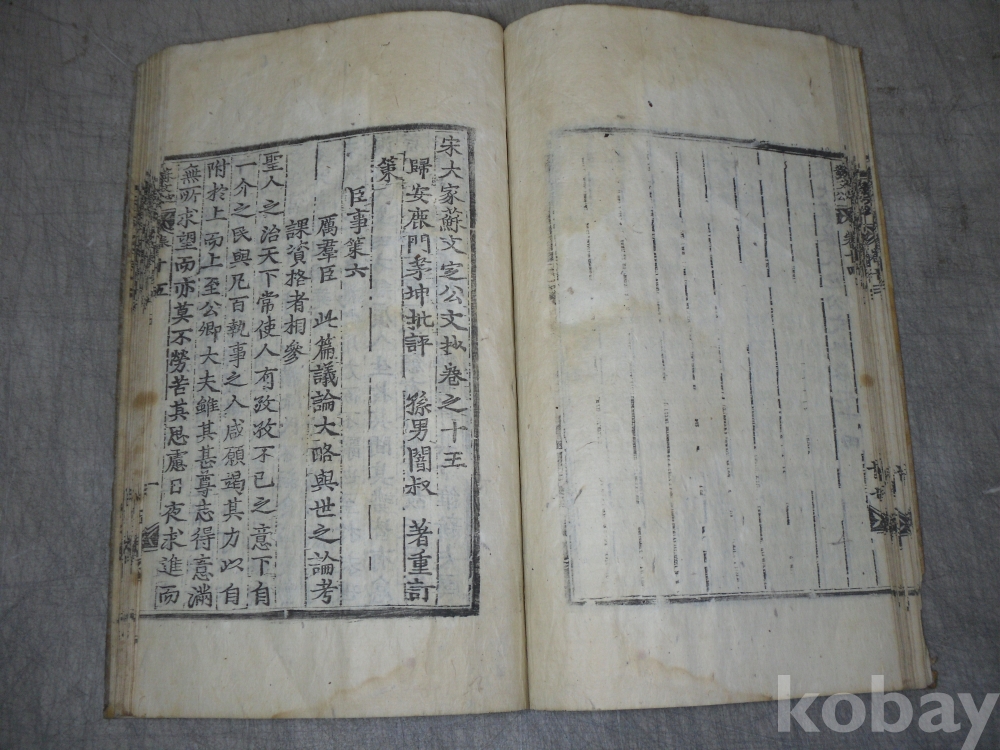 宋大家蘇文定公文抄卷之十五
歸安鹿門茅坤批評 孫男闇叔 著重訂
策
臣事第六
厲羣臣 此篇議論大略與世之論考
課資格者相參
聖人之治天下常使人有孜孜不已之意下自
一介之民與凡百執事之人咸願竭其力以自
附於上而上至公卿大夫雖其甚尊志得意滿
無所求望而亦莫不勞苦其思慮日夜求進而
kobay